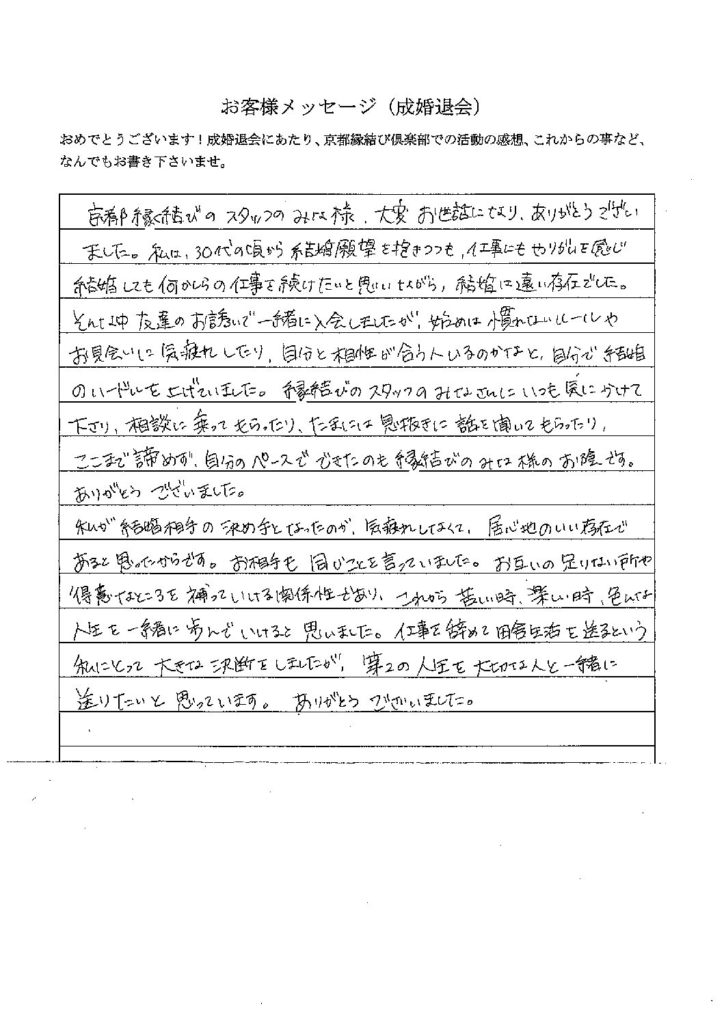 お客様メッセージ（成婚退会）
おめでとうございます！成婚退会にあたり、京都縁結び倶楽部での活動の感想、これからの事など、
なんでもお書き下さいませ。
京都縁結びのスタッフのみな様、大変お世話になり、ありがとうござい
ました。私は、30代の頃から結婚願望を抱きつつも、仕事にもやりがいを感じ
結婚しても何かしらの仕事を続けたいと思いながら、結婚に遠い存在でした。
そんな中 友達のお誘いで一緒に入会しましたが、始めは慣れないルールや
お見合いに気疲れしたり、自分と相性が合う人いるのかなと、自分で結婚
のハードルを上げていました。縁結びのスタッフのみなさんにいつも気にかけて
下さり、相談に乗ってもらったり、たまには息抜きに話を聞いてもらったり、
ここまで諦めず、自分のペースでできたのも縁結びのみな様のお陰です。
ありがとうございました。
私が結婚相手の決め手となったのが、気疲れしなくて、居心地のいい存在で
あると思ったからです。お相手も同じことを言っていました。お互いの足りない所や
得意なところを補っていける関係性であり、これから苦しい時、楽しい時、色んな
人生を一緒に歩んでいけると思いました。仕事を辞めて田舎生活を送るという
私にとって大きな決断をしましたが、第2の人生を大切な人と一緒に
送りたいと思っています。ありがとうございました。